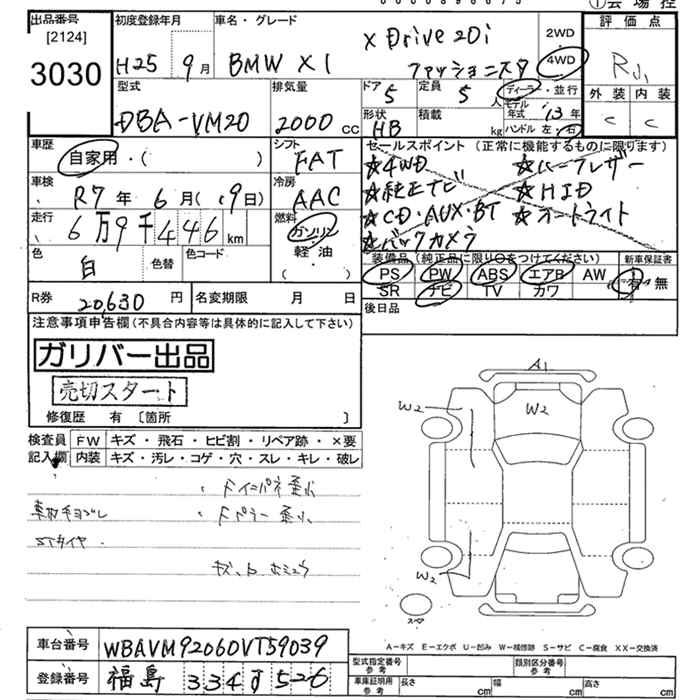 ①会場控
出品番号
[2124]
3030
初度登録年月
H25 9月
車名・グレード
BMW X1
X Drive 20i
ファッショニスタ
2WD
4WD
評価点
R
外装 内装
C C
型式
DBA-VM20
排気量
2000 CC
ドア
5
定員
5 人
ディーラ・並行
モデル年式 13年
ハンドル 左・右
形状
HB
積載
kg
車歴
自家用・( )
シフト
FAT
セールスポイント(正常に機能するものに限ります)
★4WD ★ハーフレザー
★純正ナビ ★HID
★CD・AUX・BT ★オートライト
★バックカメラ
車検
R7年6月(9日)
冷房
AAC
走行
6万9千446km
燃料
ガソリン
軽油
( )
色
白
色替
色コード
装備品(純正品に限り○をつけてください)
PS PW ABS エアB AW
SR ナビ TV カワ
新車保証書
有・無
R券 20,630円
名変期限 月 日
後日品
注意事項申告欄(不具合内容等は具体的に記入して下さい)
ガリバー出品
売切スタート
修復歴 有〔箇所 〕
検査員記入欄
FW キズ・飛石・ヒビ割・リペア跡・×要
内装 キズ・汚レ・コゲ・穴・スレ・キレ・破レ
Fインパネ歪ミ
STタイヤ
A1
W2
W2
W2
スペア
A-キズ E-エクボ U-凹み W-補修跡 S-サビ C-腐食 XX-交換済
車台番号 WBAVM92060VT59039
登録番号 福島 334す526
型式指定番号 参考
類別区分番号 参考
車庫証明用 参考
長さ cm 幅 cm 高さ cm